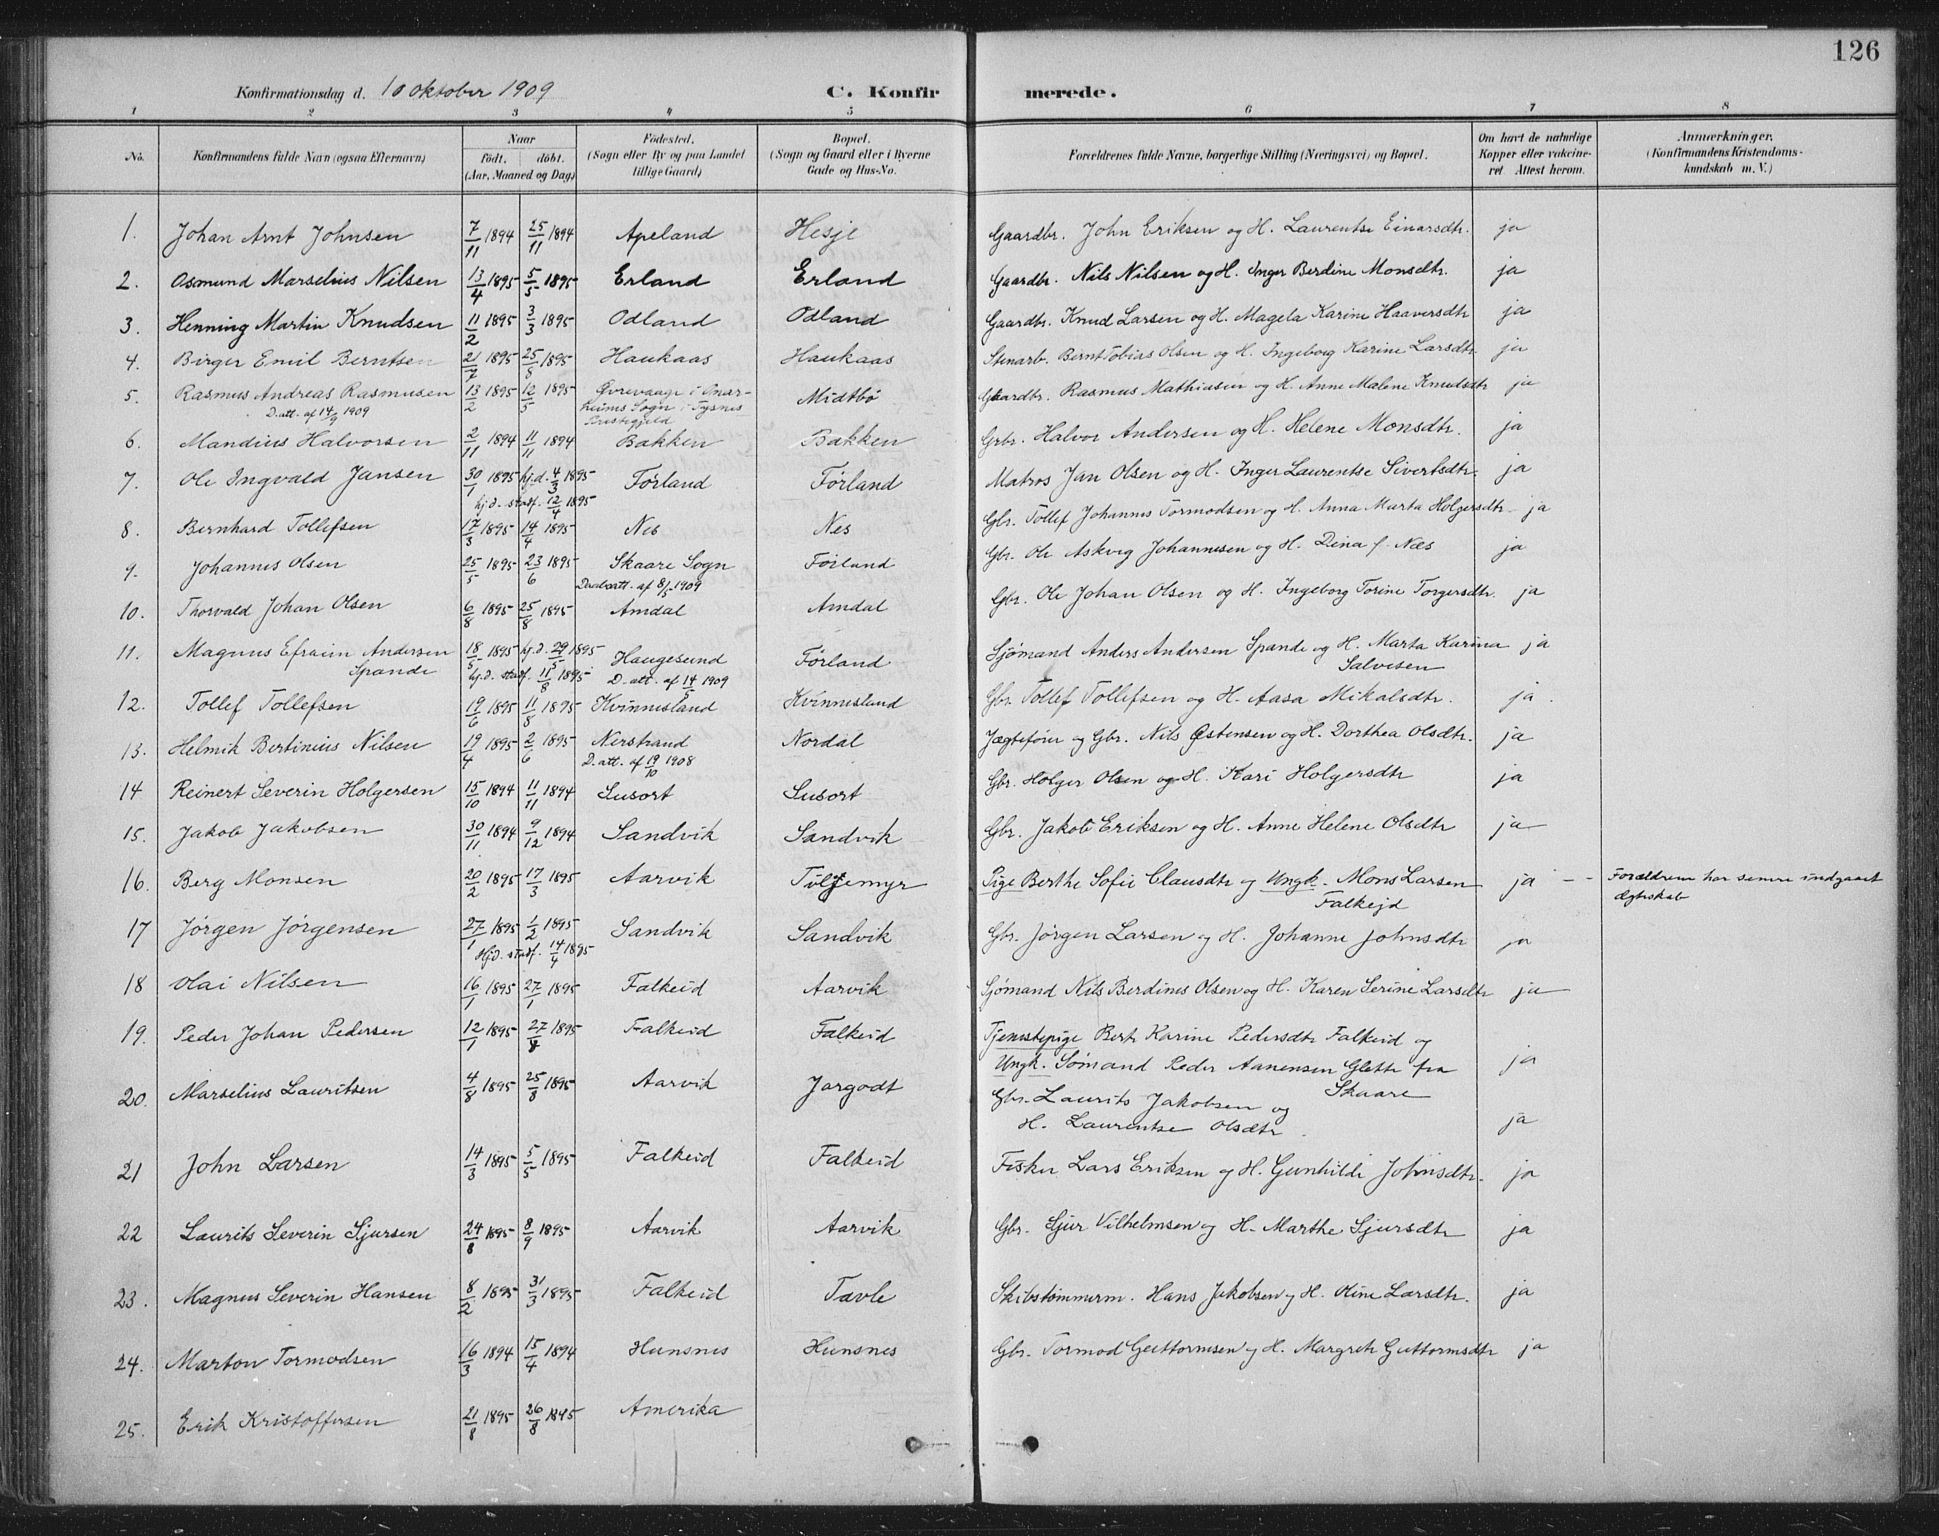 126
Konfirmationsdag d. 10 Oktober 1909 C. Konfirmerede.
1 2 3 4 5 6 7 8
No. Konfirmandens fulde Navn (ogsaa Efternavn) Naar født. døbt. (Aar, Maaned og Dag) Fødested. (Sogn eller By og paa Landet tillige Gaard) Bopæl. (Sogn og Gaard eller i Byerne Gade og Hus-No. Forældrenes fulde Navne, borgerlige Stilling (Næringsvei) og Bopæl. Om havt de naturlige Kopper eller vakcineret. Attest herom. Anmærkninger. (Konfirmandens Kristendomskundskab m. V.)
1. Johan Arnt Johnsen 7/11 1894 25/11 1894 Apeland Hesje Gaardbr. John Eriksen og H. Laurentse Einarsdtr. ja
2. Osmund Marselius Nilsen 13/4 1895 5/5 1895 Erland Erland Gaardbr. Nils Nilsen og H. Inger Berdine Monsdtr. ja
3. Henning Martin Knudsen 11/2 1895 3/3 1895 Odland Odland Gaardbr. Knud Larsen og H. Magela Karine Haaversdtr ja
4. Birger Emil Berntsen 21/7 1895 25/8 1895 Haukaas Haukaas Stenarb. Bernt Tobias Olsen og H. Ingeborg Karine Larsdtr ja
5. Rasmus Andreas Rasmussen 13/2 1895 12/5 1895 i Onar- Midtbø Gaardbr. Rasmus Mathiasen og H. Anne Malene Knudsdtr ja
D. att. af 14/9 1909 heims Sogn i Tysnes
Prestegjeld
6. Mandius Halvorsen 2/11 1894 11/11 1894 Bakken Bakken Grbr. Halvor Andersen og H. Helene Monsdtr. ja
7. Ole Ingvald Jansen 30/1 1895 hj.d. 4/3 1895 Førland Førland Matros Jan Olsen og H. Inger Laurentse Sivertsdtr. ja
hj.d. stadf. 12/4 1895
8. Bernhard Tollefsen 17/3 1895 14/4 1895 Nes Nes Gbr. Tollef Johannes Tormodsen og H. Anna Marta Holgersdtr ja
9. Johannes Olsen 25/5 1895 23/6 1895 Skaare Sogn Førland Gbr. Ole Askvig Johannesen og H. Dina f. Næs ja
Daabsatt. af 8/5 1909
10. Thorvald Johan Olsen 6/8 1895 25/8 1895 Amdal Amdal Gbr. Ole Johan Olsen og H. Ingeborg Torine Torgersdtr. ja
11. Magnus Efraim Andersen 18/5 1895 hj.d. 29/5 1895 Haugesund Førland Sjømand Anders Andersen Spande og H. Marta Karina ja
Spande hj.d. stadf. 11/8 1895 D. att. af 14/5 1909 Salvesen
12. Tollef Tollefsen 19/6 1895 11/8 1895 Kvinnesland Kvinnesland Gbr. Tollef Tollefsen og H. Aasa Mikalsdtr. ja
13. Helmik Bertinius Nilsen 19/4 1895 2/6 1895 Nerstrand Nordal Jægtefører og Gbr. Nils Østensen og H. Dorthea Olsdtr. ja
D. att. af 19/10 1908
14 Reinert Severin Holgersen 15/10 1894 11/11 1894 Susort Susort Gbr. Holger Olsen og H. Kari Holgersdtr ja
15. Jakob Jakobsen 30/11 1894 9/12 1894 Sandvik Sandvik Gbr. Jakob Eriksen og H. Anne Helene Olsdtr ja
16. Berg Monsen 20/2 1895 17/3 1895 Aarvik Tiltjemyr Pige Berthe Sofie Clausdtr og Ungk. Mons Larsen ja - - Forældrene har senere indgaaet
Falkejd Ægteskab
17 Jørgen Jørgensen 27/1 1895 1/2 1895 Sandvik Sandvik Gbr. Jørgen Larsen og H. Johanne Johnsdtr ja
Hjd. stadf. 14/4 1895
18 Olai Nilsen 16/1 1895 27/1 1895 Falkeid Aarvik Sjømand Nils Berdines Olsen og H. Karen Serine Larsdtr ja
19. Peder Johan Pedersen 12/1 1895 27/8 1895 Falkeid Falkeid Tjenestepige Bert Karine Pedersdtr Falkeid og
Ungk. Sømand Peder Aanensen Glette fra ja
Skaare
20. Marselius Lauritsen 4/8 1895 25/8 1895 Aarvik Jargodt Gbr. Laurits Jakobsen og
H. Laurentse Olsdtr. ja
21 John Larsen 14/3 1895 5/5 1895 Falkeid Falkeid Fisker Lars Eriksen og H. Gunhilde Johnsdtr. ja
22 Laurits Severin Sjursen 24/8 1895 8/9 1895 Aarvik Aarvik Gbr. Sjur Vilhelmsen og H. Marthe Sjursdtr ja
23. Magnus Severin Hansen 8/2 1895 31/3 1895 Falkeid Tavle Skibstømmerm. Hans Jakobsen og H. Oline Larsdtr. ja
24. Marton Tormodsen 16/3 1894 15/4 1894 Hunsnes Hunsnes Gbr. Tormod Guttormsen og H. Margrete Guttormsdtr ja
25. Erik Kristoffersen 21/8 1895 26/8 1895 Amerika